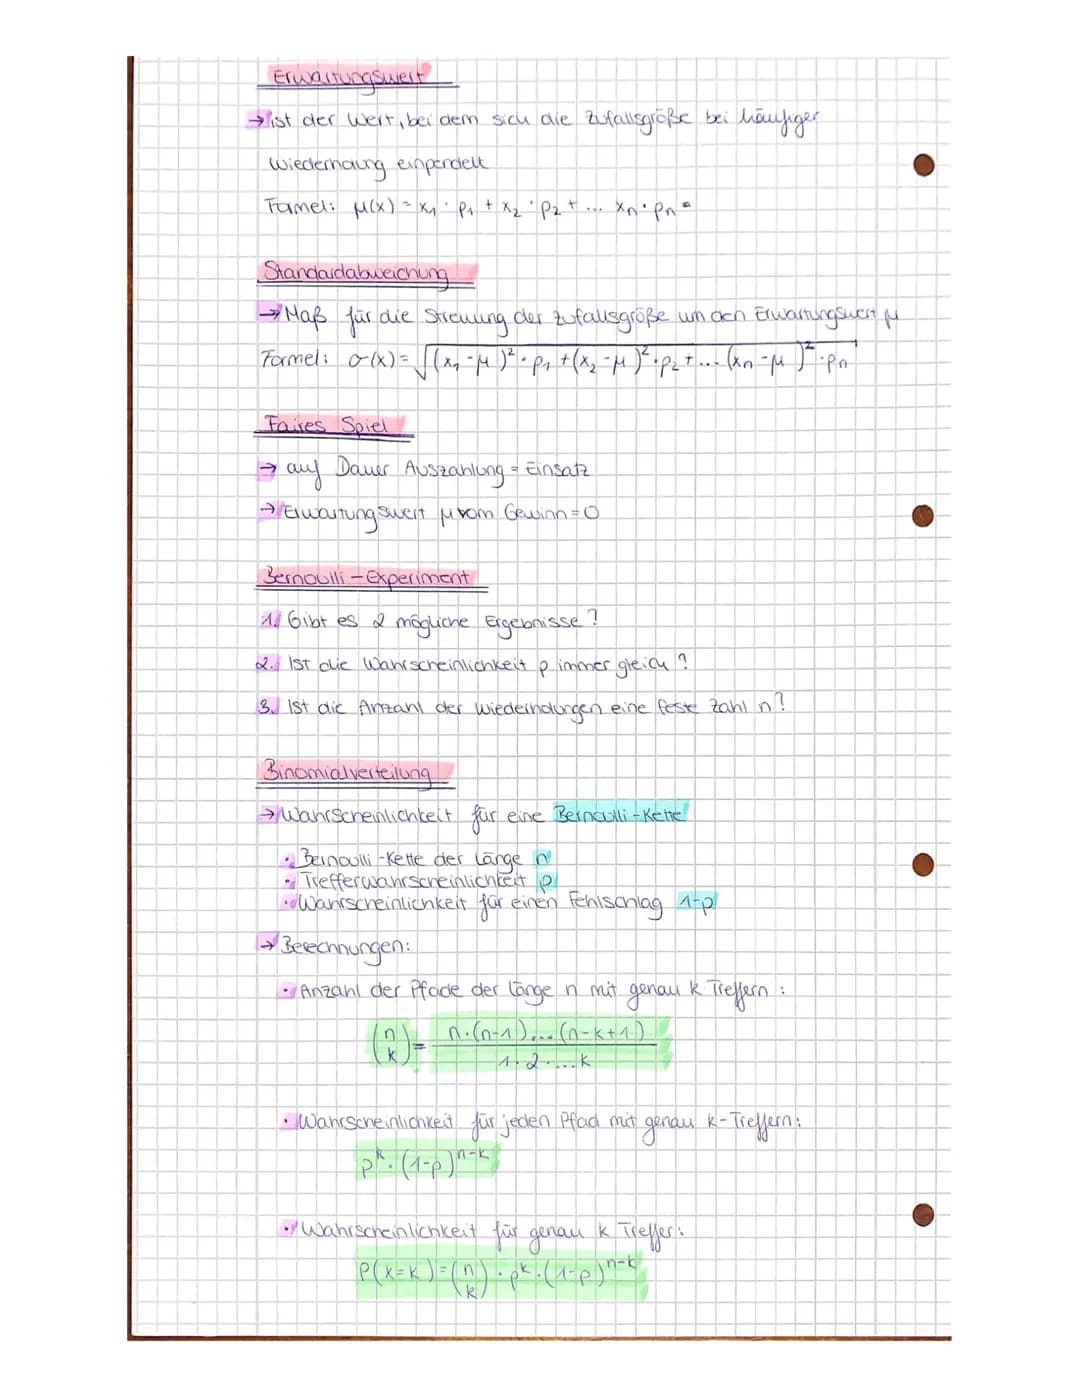 Erwartungswert
→ ist der Wert, bei dem sich die Zufallsgröße bei häufiger
Wiederholung einpendelt
Formel: μ(x) = x₁ · p₁ + x₂ · p₂ + ... xn · pn =
Standardabweichung
→ Maß für die Streuung der Zufallsgröße um den Erwartungswert μ
Formel: σ(x) = √((x₁ - μ)² · p₁ + (x₂ - μ)² · p₂ + ... (xn - μ)² · pn)
Faires Spiel
→ auf Dauer Auszahlung = Einsatz
→ Erwartungswert μ vom Gewinn = 0
Bernoulli - Experiment
1. Gibt es 2 mögliche Ergebnisse?
2. Ist die Wahrscheinlichkeit p immer gleich?
3. Ist die Anzahl der Wiederholungen eine feste Zahl n?
Binomialverteilung
→ Wahrscheinlichkeit für eine Bernoulli - Kette
· Bernoulli - Kette der Länge n
· Trefferwahrscheinlichkeit p
· Wahrscheinlichkeit für einen Fehlschlag 1-p
→ Berechnungen:
· Anzahl der Pfade der Länge n mit genau k Treffern:
(n k) = n·(n-1)·...(n-k+1) / 1·2·...k
· Wahrscheinlichkeit für jeden Pfad mit genau k-Treffern:
p^k · (1-p)^n-k
· Wahrscheinlichkeit für genau k Treffer:
P(x=k) = (n k) · p^k · (1-p)^n-k